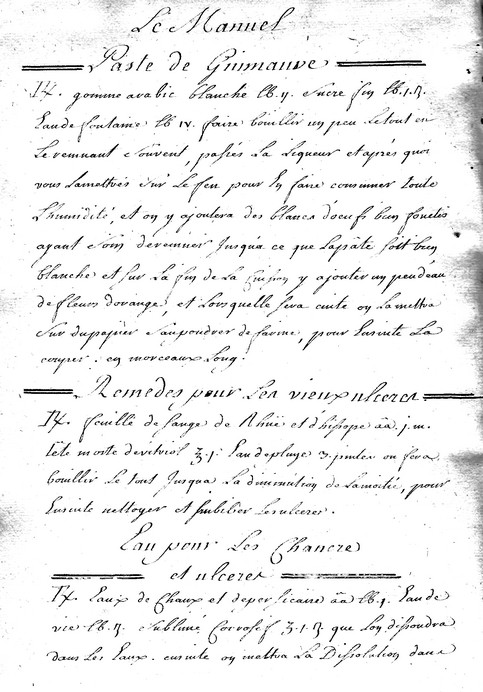 Le Manuel
Paste de Guimauve
℞. gomme arabic blanche lb ij. Sucre fin lb.1.ß.
Eau de fontaine lb iv. faire bouillir un peu le tout en
Le remuant Souvent, passés La Liqueur et aprés quoi
vous Lamettrés Sur Le feu pour En faire consumer toute
L'humidité, et on y ajoutera des blancs d'oeufs bien fouetés
ayant Soin deremuer Jusqua ce que Lapâte soit bien
blanche et sur La fin de La Cuison y ajouter un peu deau
de fleurs dorange, et Lorsquelle sera cuite on Lamettra
Sur dupapier Saupoudrer de farine, pour Ensuite La
couper. en morceaux Long.
Remedes pour Les vieux ulceres
℞. feuille de sauge de Rhüe et dhissope āā j. m.
tête morte de vitriol ʒ.1. Eau depluye 3. pintes on fera
bouillir Le tout Jusqua La diminution de Lamoitié, pour
Ensuite nettoyer et Imbiber Les ulceres.
Eau pour Les Chancre
et ulceres
℞. Eaux de Chaux et de persicaire āā lb.j. Eau de
vie lb.ß. Sublimé Corosif ʒ.1.ß. que Lon dissoudra
dans Les Eaux. ensuite on mettra La Dissolution dans